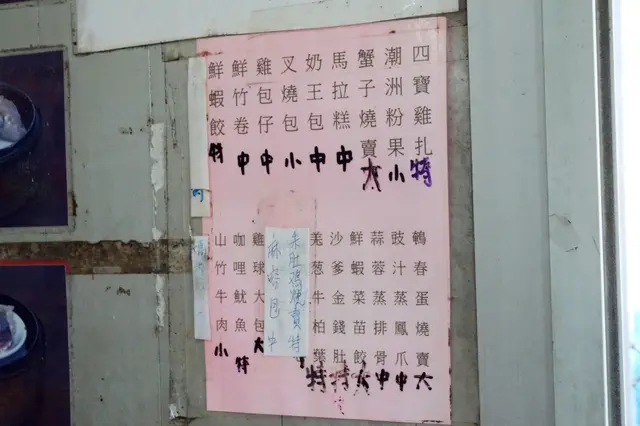 四寶雞扎特
潮洲粉果小
蟹子燒賣大
馬拉糕中
奶王包中
叉燒包小
雞包仔中
鮮竹卷中
鮮蝦餃特
鵪春蛋燒賣大
豉汁蒸鳳爪中
蒜蓉蒸排骨中
鮮蝦菜苗餃大
沙爹金錢肚特
羗葱牛柏葉特
燒賣特
包中
雞球大包大
咖哩魷魚特
山竹牛肉小